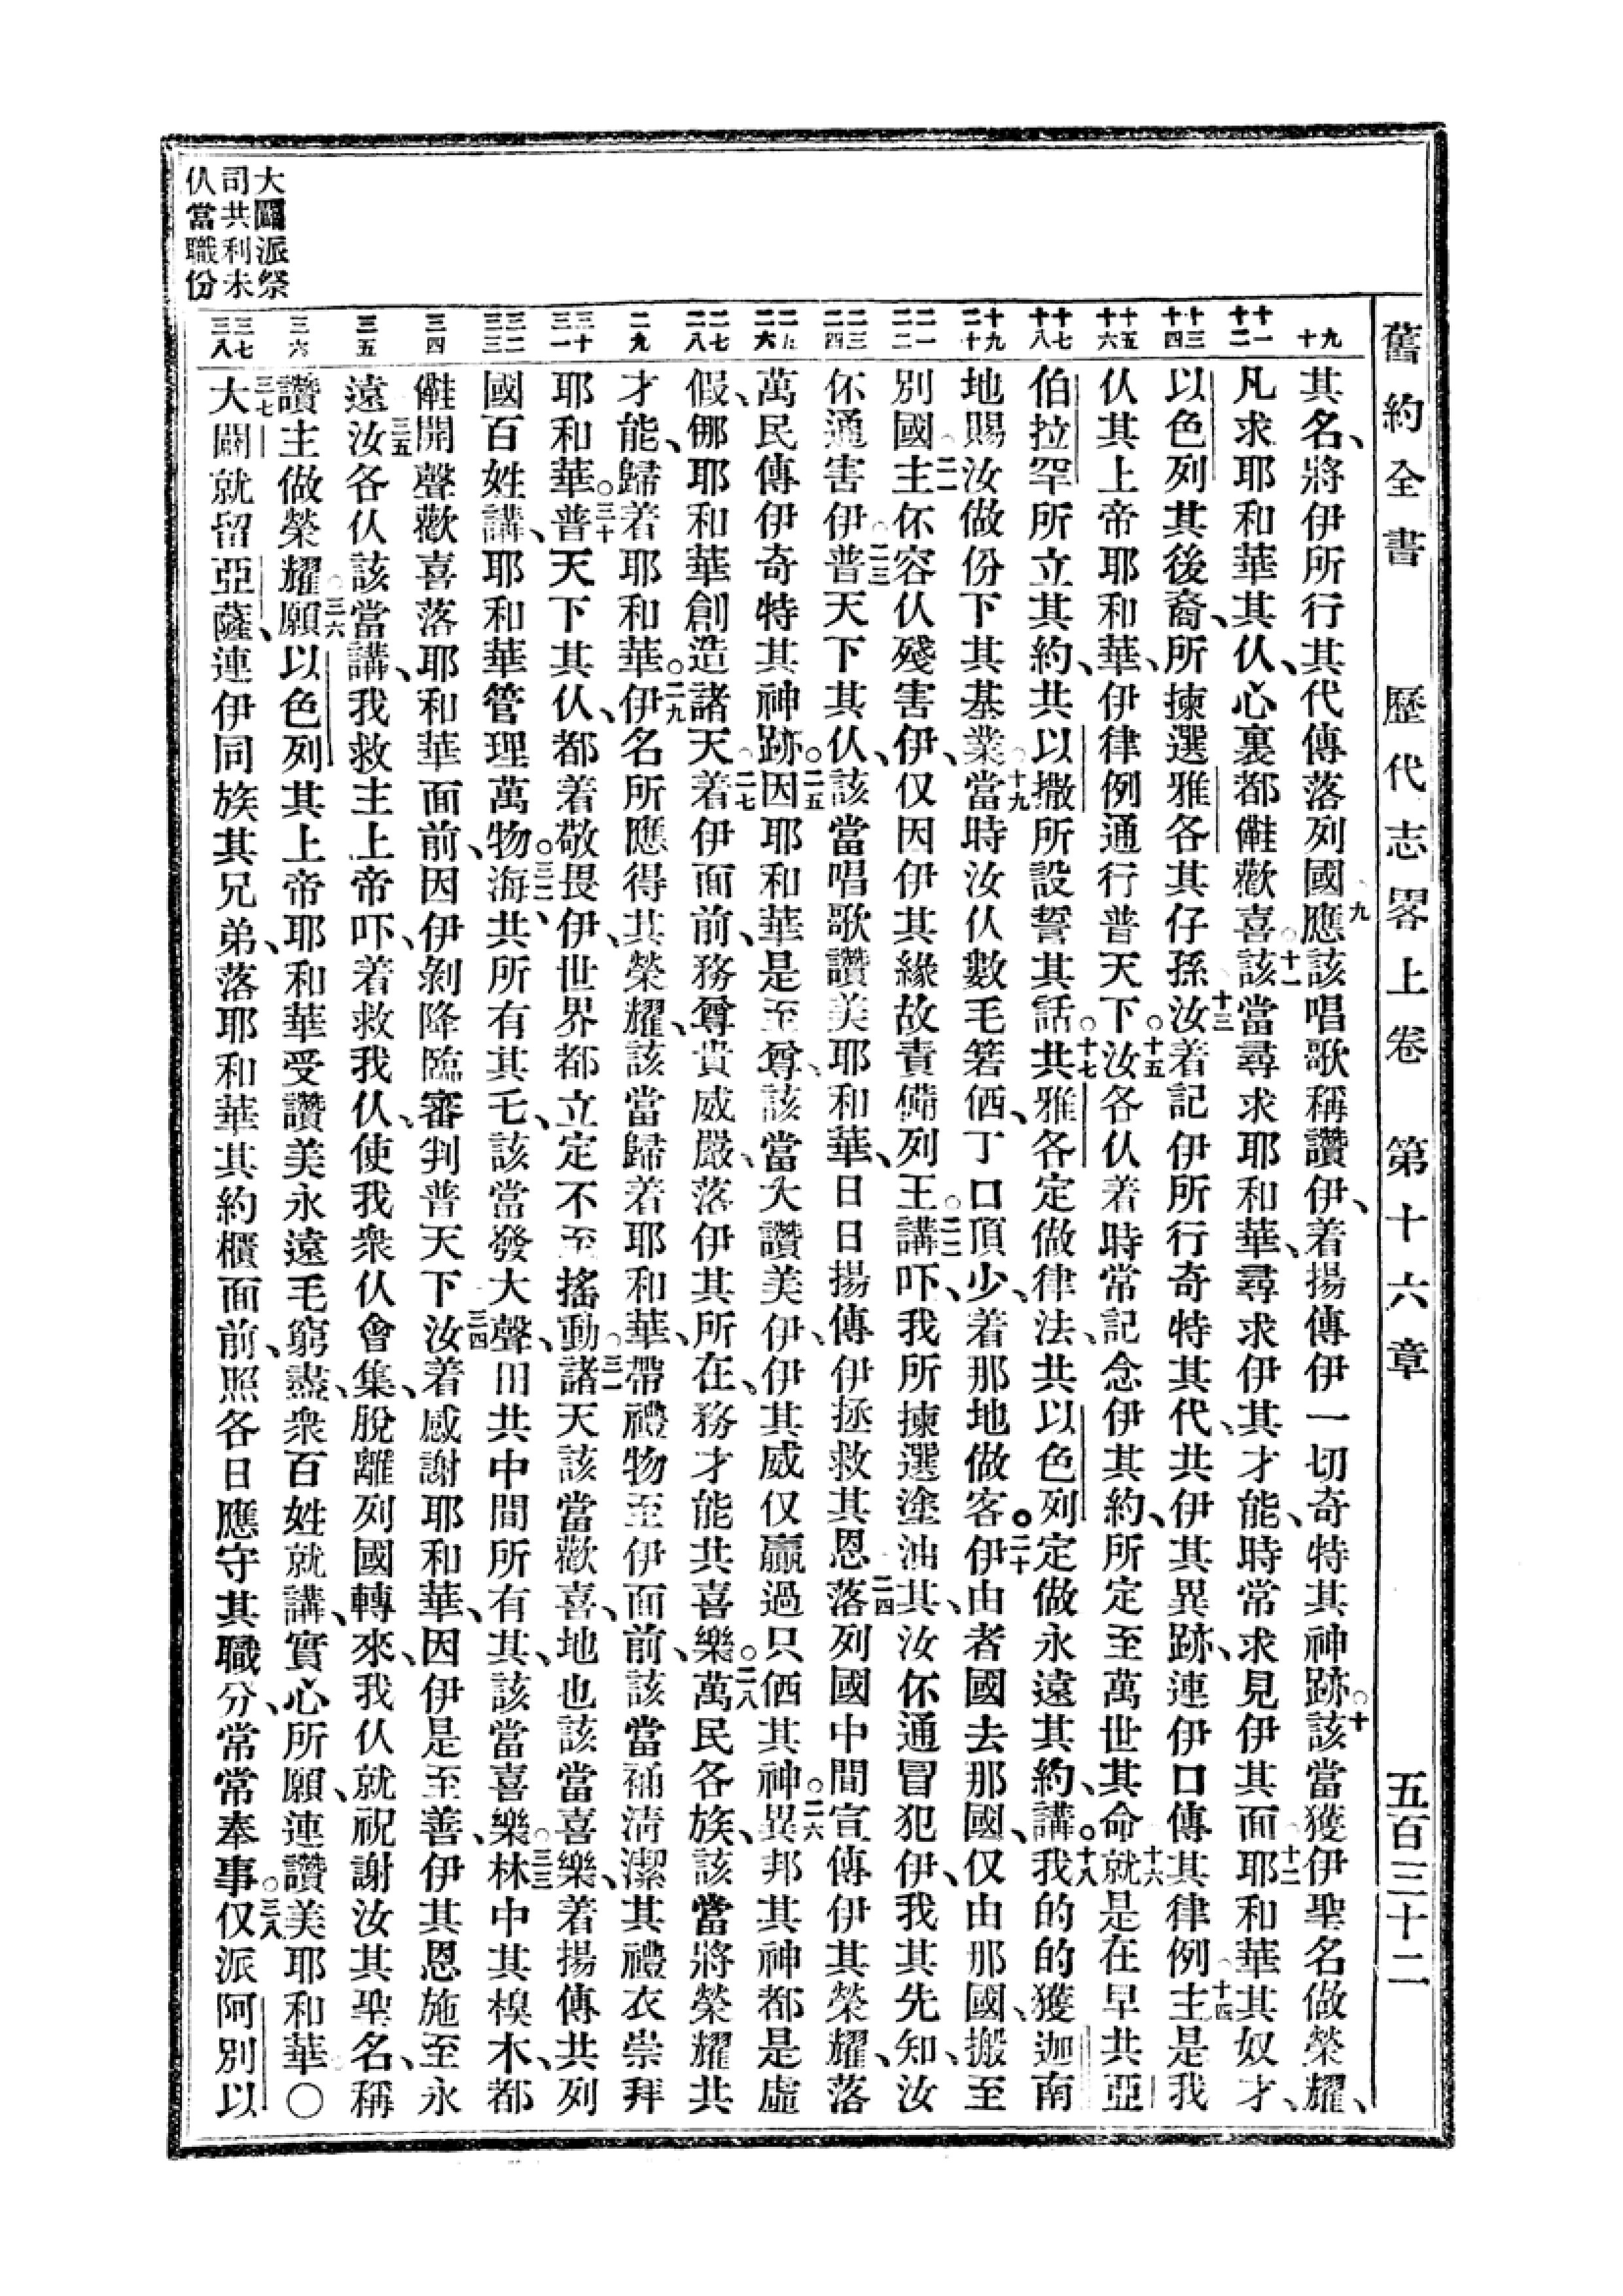 舊約全書 歷代志畧上卷 第十六章 五百三十二
九 十
其名、將伊所行其代傳落列國九應該唱歌稱讚伊、着揚傳伊一切奇特其神跡○十該當獲伊聖名做榮耀、
十一 十二
凡求耶和華其仈、心裏都𠆧歡喜○十一該當尋求耶和華、尋求伊其才能、時常求見伊其面○十二耶和華其奴才、
十三 十四
以色列其後裔、所揀選雅各其仔孫、十三汝着記伊所行奇特其代、共伊其異跡、連伊口傳其律例○十四主是我
十五 十六
仈其上帝耶和華、伊律例通行普天下○十五汝各仈着時常記念伊其約、所定至萬世其命○十六就是在早共亞
十七 十八
伯拉罕所立其約、共以撒所設誓其話○十七共雅各定做律法、共以色列定做永遠其約、講○十八我的的獲迦南
十九 二十
地賜汝做份下其基業○十九當時汝仈數毛箬㐁、丁口頂少、着那地做客○二十伊由者國去那國、仅由那國、搬至
二一 二二
別國○二一主伓容仈殘害伊、仅因伊其緣故責備列王○二二講吓、我所揀選塗油其、汝伓通冒犯伊、我其先知、汝
二三 二四
伓通害伊○二三普天下其仈、該當唱歌讚美耶和華、日日揚傳伊拯救其恩○二四落列國中間宣傳伊其榮耀、落
二五 二六
萬民傳伊奇特其神跡○二五因耶和華是至尊、該當大讚美伊、伊其威仅贏過只㐁其神○二六異邦其神都是虛
二七 二八
假、郍耶和華創造諸天○二七着伊面前、務尊貴威嚴、落伊其所在、務才能共喜樂○二八萬民各族、該當將榮耀共
二九
才能、歸着耶和華○二九伊名所應得其榮耀、該當歸着耶和華、帶禮物至伊面前、該當補清潔其禮衣崇拜
三十 三一
耶和華○三十普天下其仈、都着敬畏伊、世界都立定不至搖動○三一諸天該當歡喜、地也該當喜樂、着揚傳共列
三二 三三
國百姓講、耶和華管理萬物○三二海、共所有其乇、該當發大聲、田共中間所有其、該當喜樂○三三林中其樹木、都
三四
𠆧開聲歡喜落耶和華面前、因伊剝降臨審判普天下○三四汝着感謝耶和華、因伊是至善、伊其恩施至永
三五
遠○三五汝各仈該當講、我救主上帝吓、着救我仈、使我衆仈會集、脫離列國轉來、我仈就祝謝汝其聖名、稱
三六
讚主做榮耀○三六願以色列其上帝耶和華受讚美永遠毛窮盡、衆百姓就講、實心所願、連讚美耶和華○
三七 三八
三七大闢就留亞薩、連伊同族其兄弟、落耶和華其約櫃面前、照各日應守其職分、常常奉事○三八仅派阿別以
大闢派祭
司共利未
仈當職份